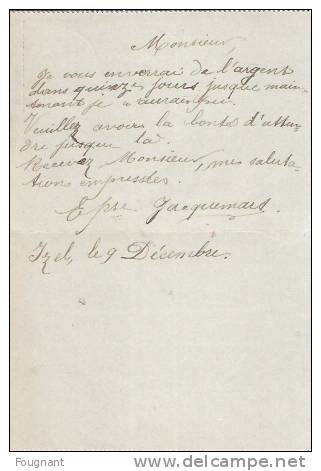 Monsieur,
Je vous enverrai de l'argent
dans quinze jours, jusque main-
tenant je
Veuillez avoir la bonté d'atten-
dre jusque là.
Recevez Monsieur, mes saluta-
tions empressées.
Epse Jacquemart
Izel, le 9 Décembre.
Fougnant
delcampe.net